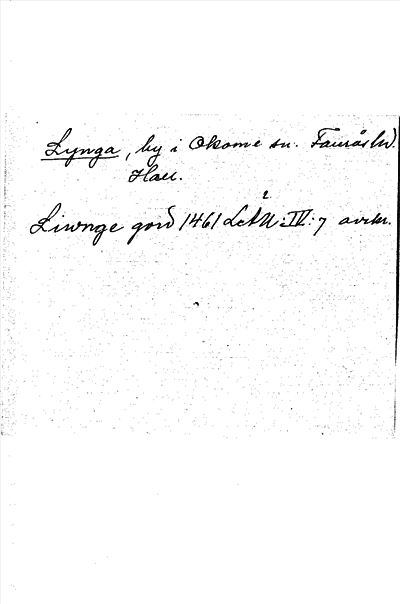 Lynga, by i Okome sn. Faurås hd.
Hall.
Liwnge gord 1461 LcAU²:IV:7 avskr.